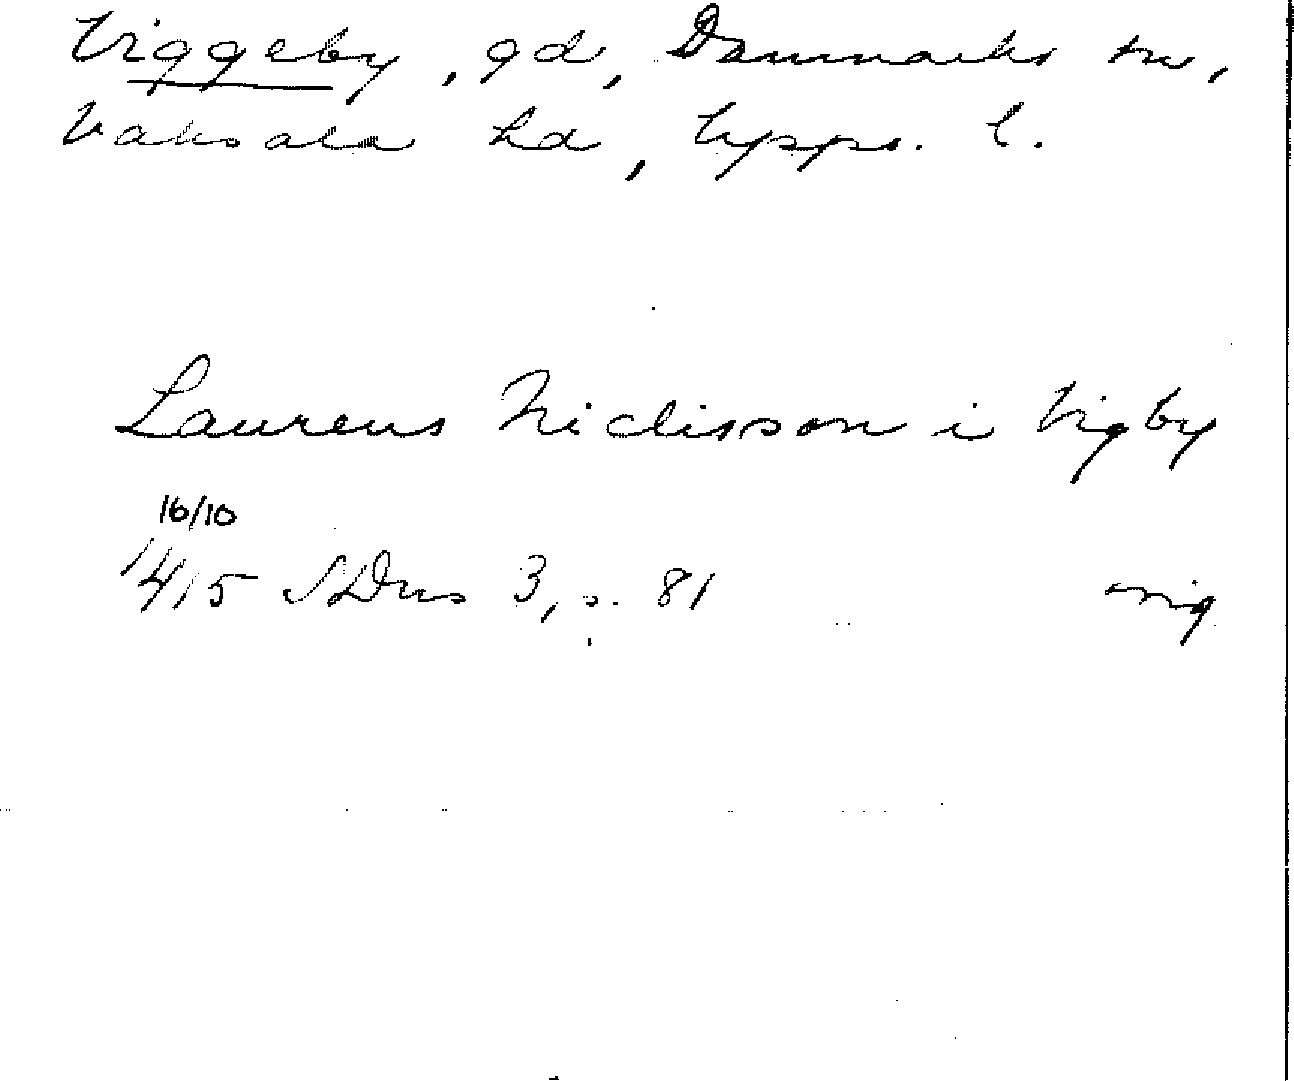 Viggeby, gd, Danmarks sn,
Vaksala hd, Upps. l.
Laurens Niclisson i Vigby
16/10
1415 SDns 3, s. 81 orig